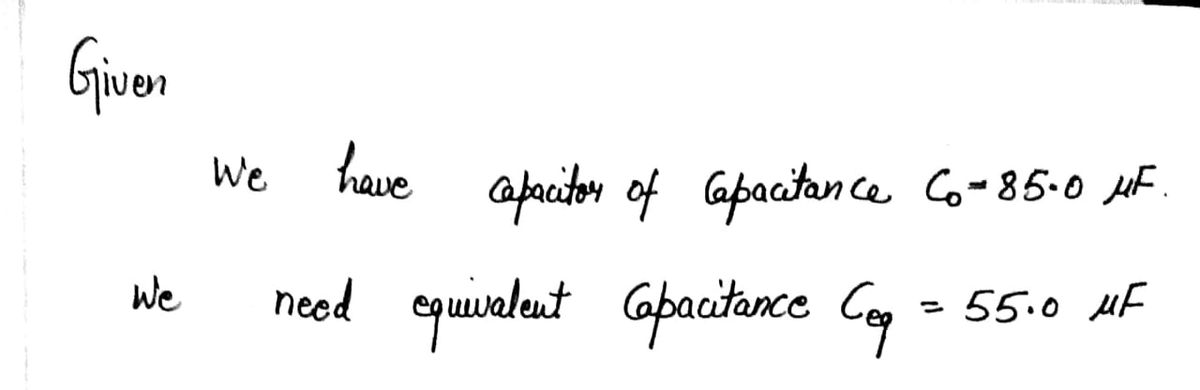 Given
We have capacitor of Capacitance C₀ = 85.0 μF.
We need equivalent Capacitance Ceq = 55.0 μF